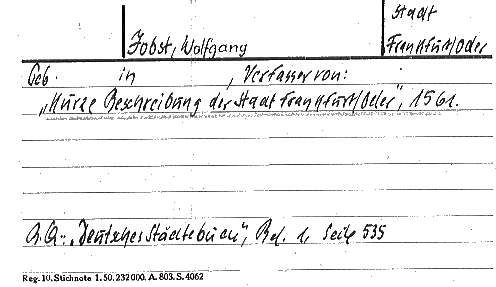 Stadt
Jobst, Wolfgang
Frankfurt/Oder
Geb. in , Verfasser von:
„Kurze Beschreibung der Stadt Frankfurt/Oder", 1561.
„Deutsches Städtebuch", Bd. 1, Seite 535
Reg. 10. Stichnote 1. 50. 232000. A. 803. S. 4062